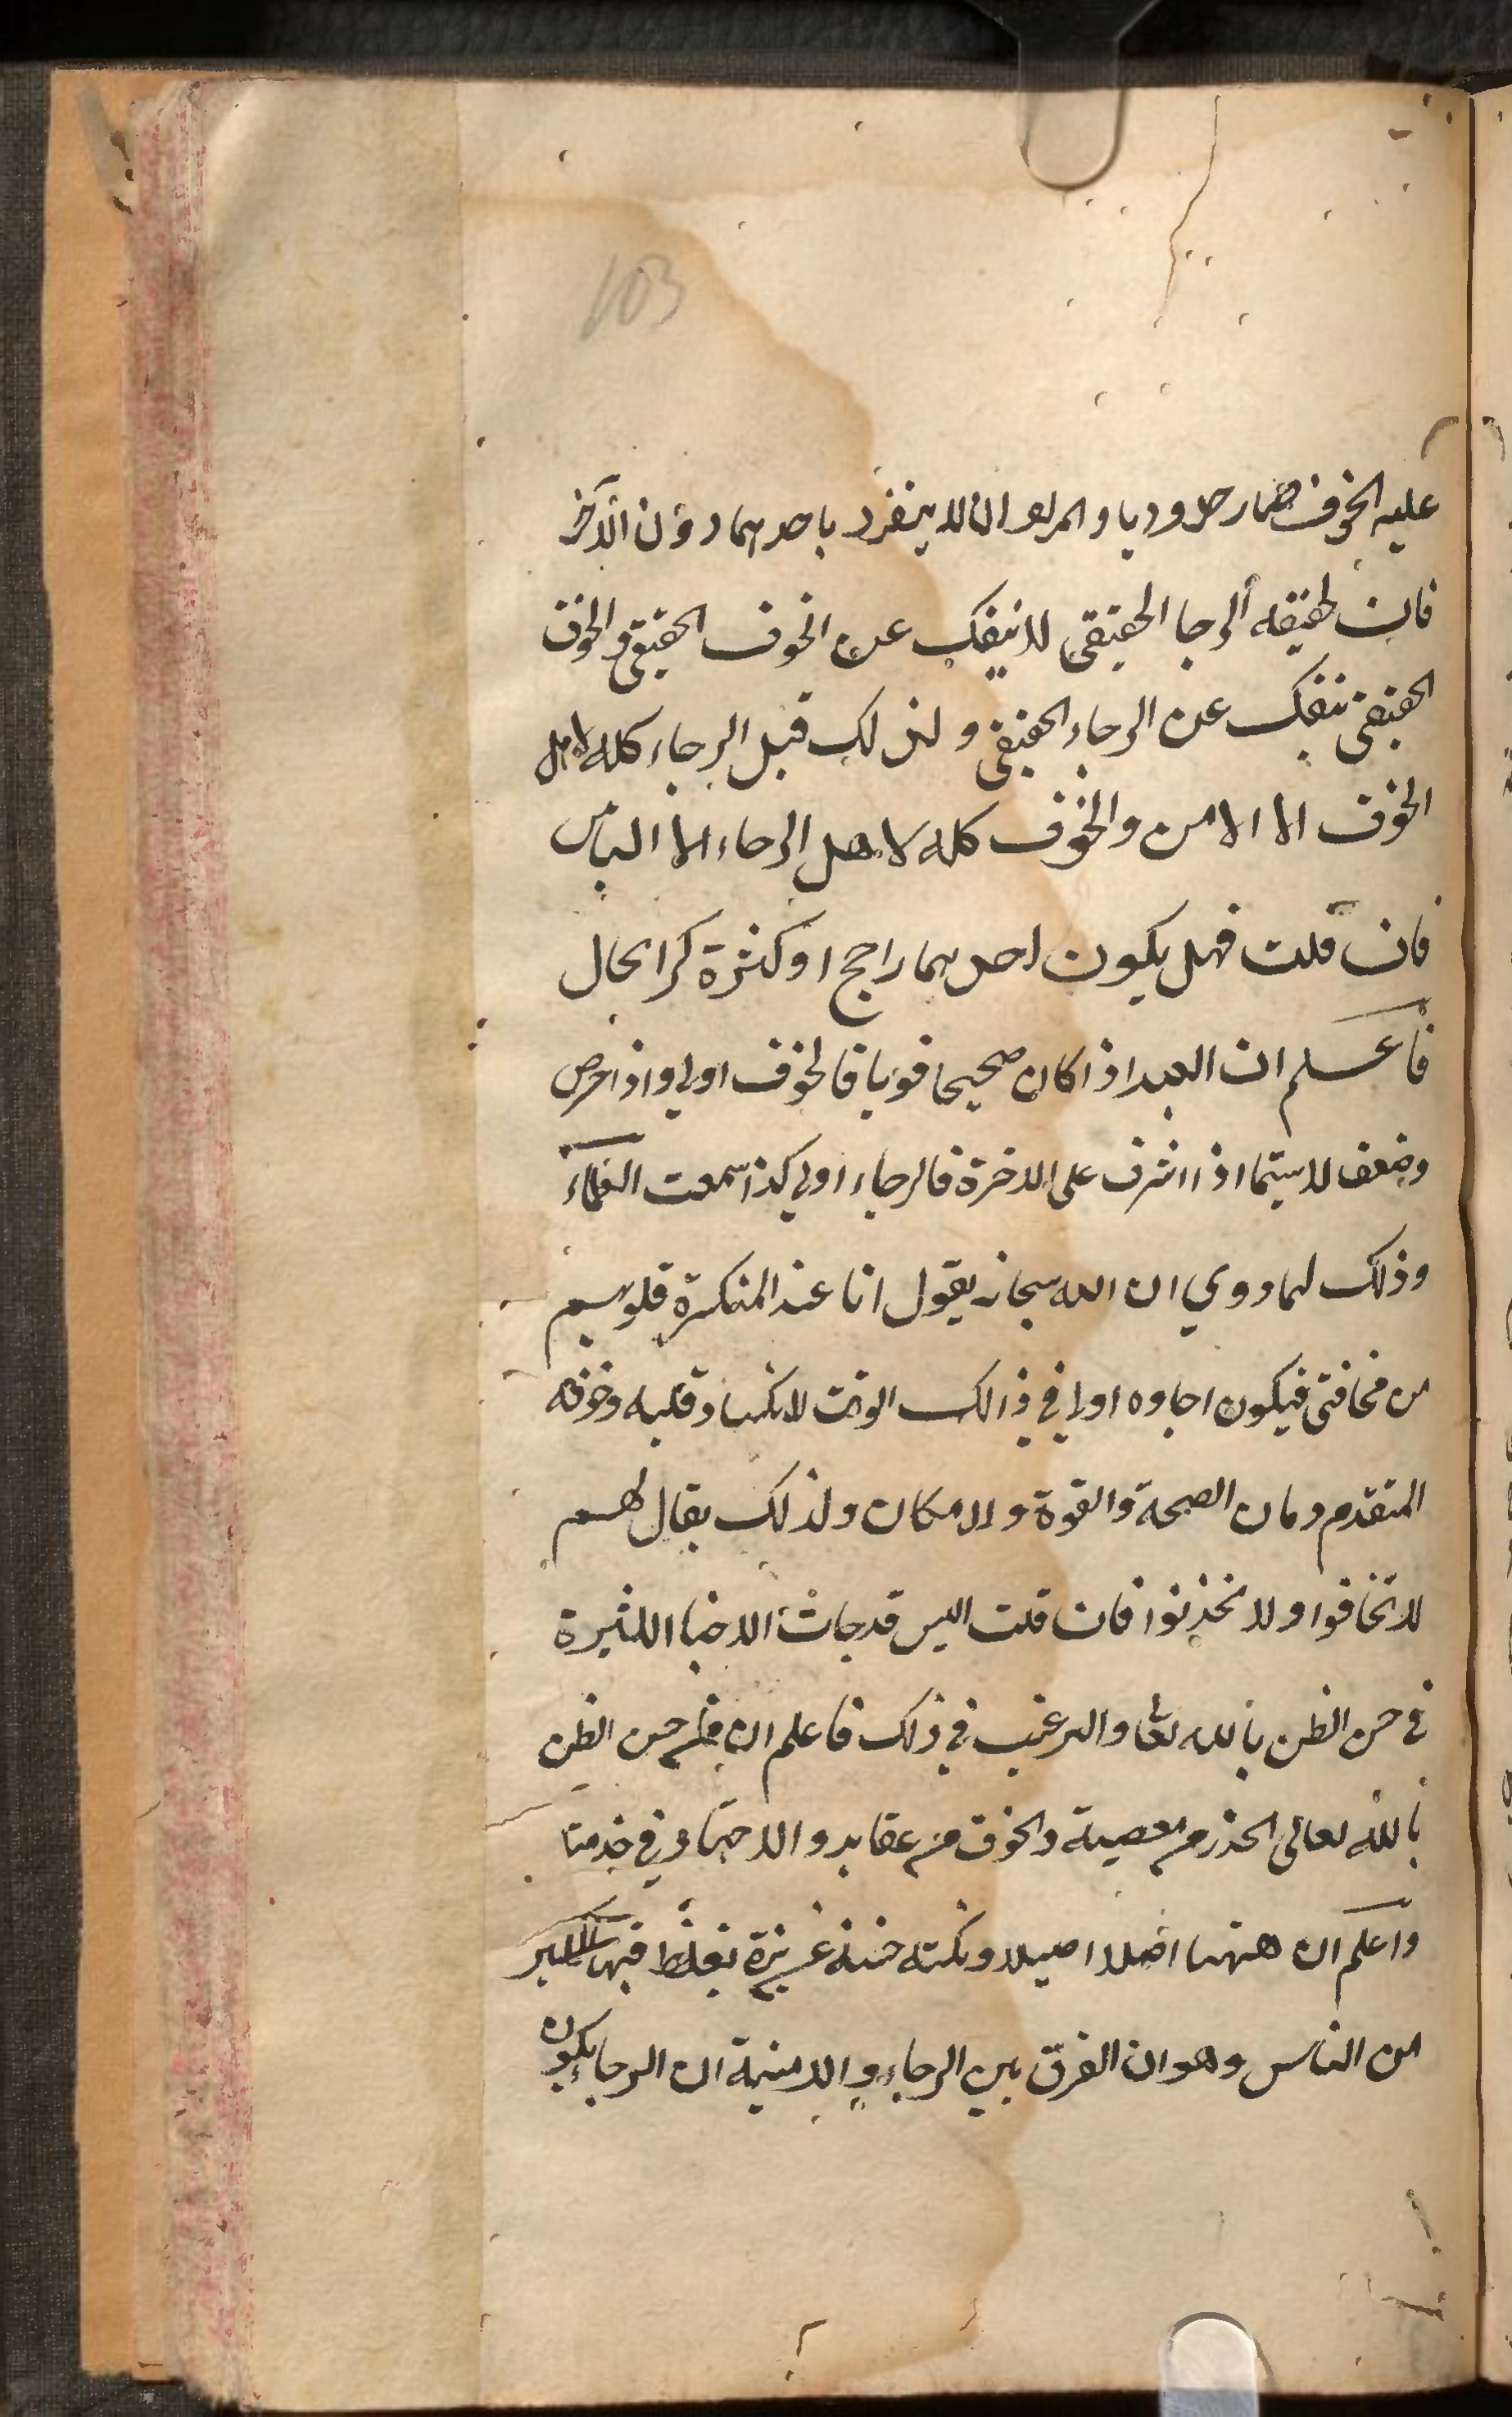 103
عليه الخوف صار حروريا والمراد ان لا ينفرد باحدهما دون الآخر
فان حقيقة الرجا الحقيقي لا ينفك عن الخوف الحقيقي والخوف
الحقيقي ينفك عن الرجاء الحقيقي ولذلك قيل الرجاء كله لاهل
الخوف الا الامن والخوف كله لاهل الرجاء الا اليأس
فان قلت فهل يكون احدهما راجح او كثرة كر ابحال
فاعلم ان العبد اذا كان صحيحا قويا فالخوف اولى واذا مرض
وضعف لا سيما اذا اشرف على الاخرة فالرجاء اولى كذا سمعت العلماء
وذلك لما روي ان الله سبحانه يقول انا عند المنكسرة قلوبهم
من مخافتي فيكون اجاوه اولى في ذالك الوقت لانكسار قلبه وخوفه
المتقدم ومان الصحة والقوة والامكان ولذلك يقال لهم
لا تخافوا ولا تحزنوا فان قلت اليس قد جائت الاخبا الكثيرة
في حسن الظن بالله تعا والترغيب في ذلك فاعلم ان من حسن الظن
بالله تعالى الحذر من معصيته والخوف من عقابه والاجتهاد في خدمته
واعلم ان ههنا اصلا اصيلا ونكتة حسنة عزيزة يغلط فيها الكثير
من الناس وهو ان الفرق بين الرجاء والامنية ان الرجا يكون